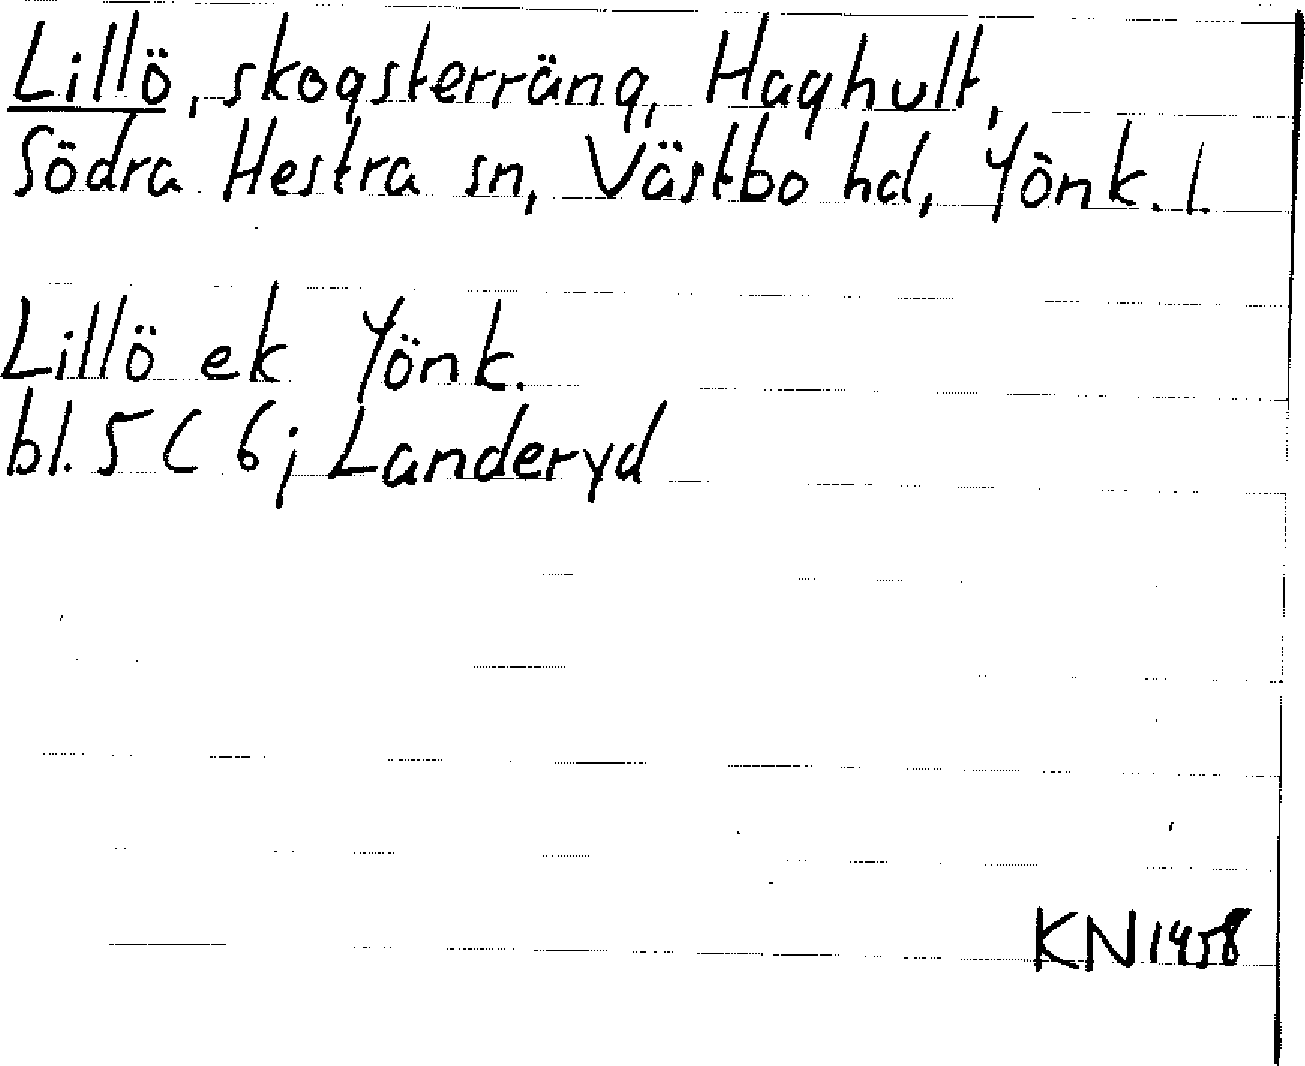 Lillö, skogsterräng, Haghult,
Södra Hestra sn, Västbo hd, Jönk. l.
Lillö ek Jönk.
bl. 5 C 6; Landeryd
KN 1958